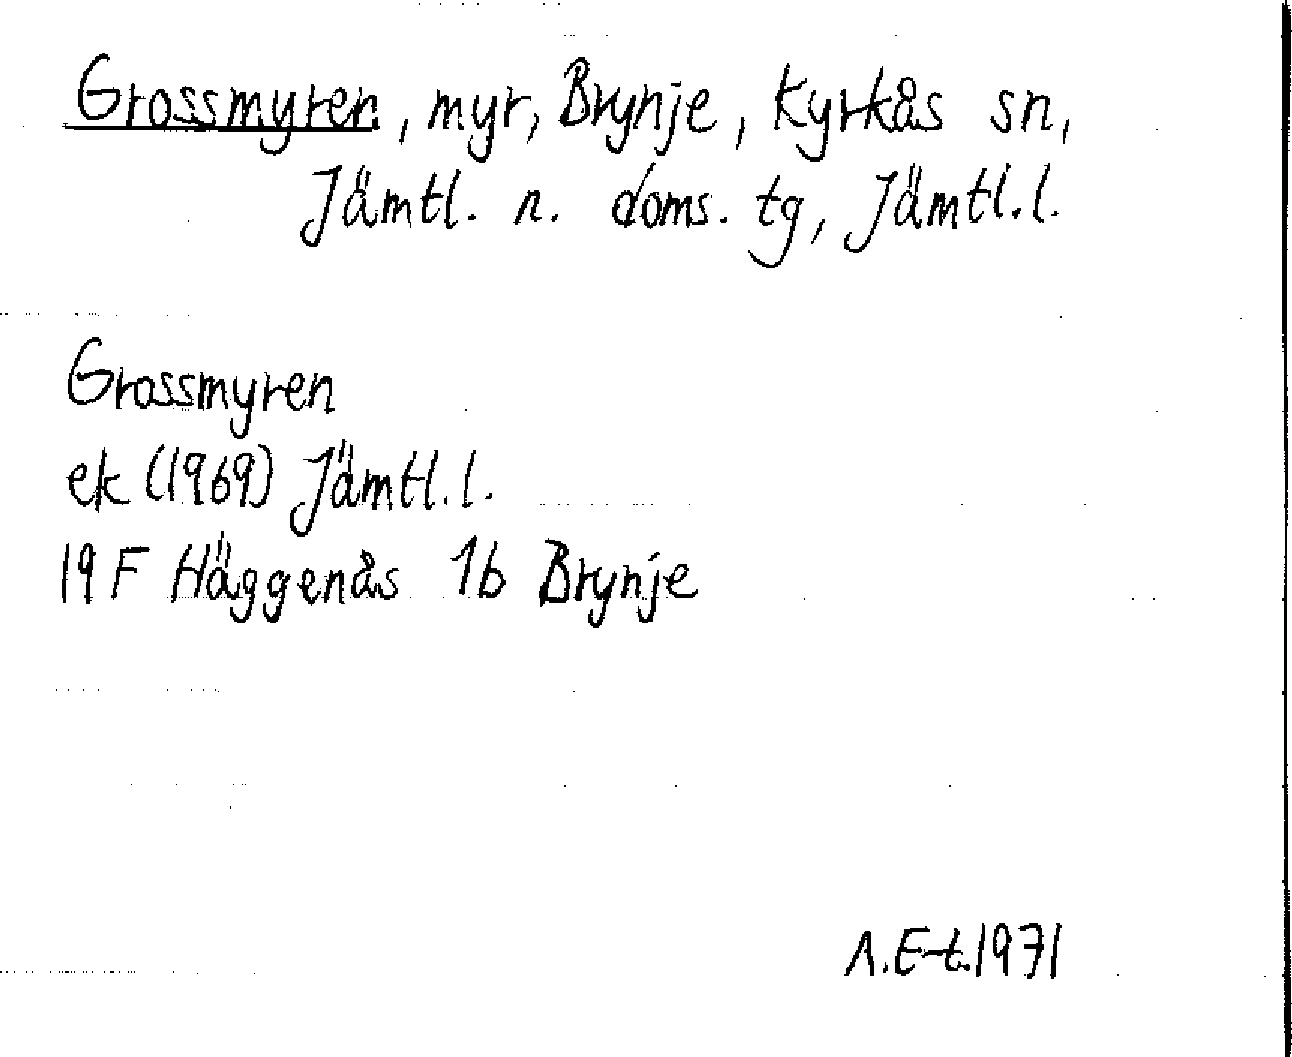 Grossmyren, myr, Brynje, Kyrkås sn,
Jämtl. n. doms. tg, Jämtl.l.
Grossmyren
ek (1969) Jämtl.l.
19 F Häggenås 1b Brynje
A.E-t.1971